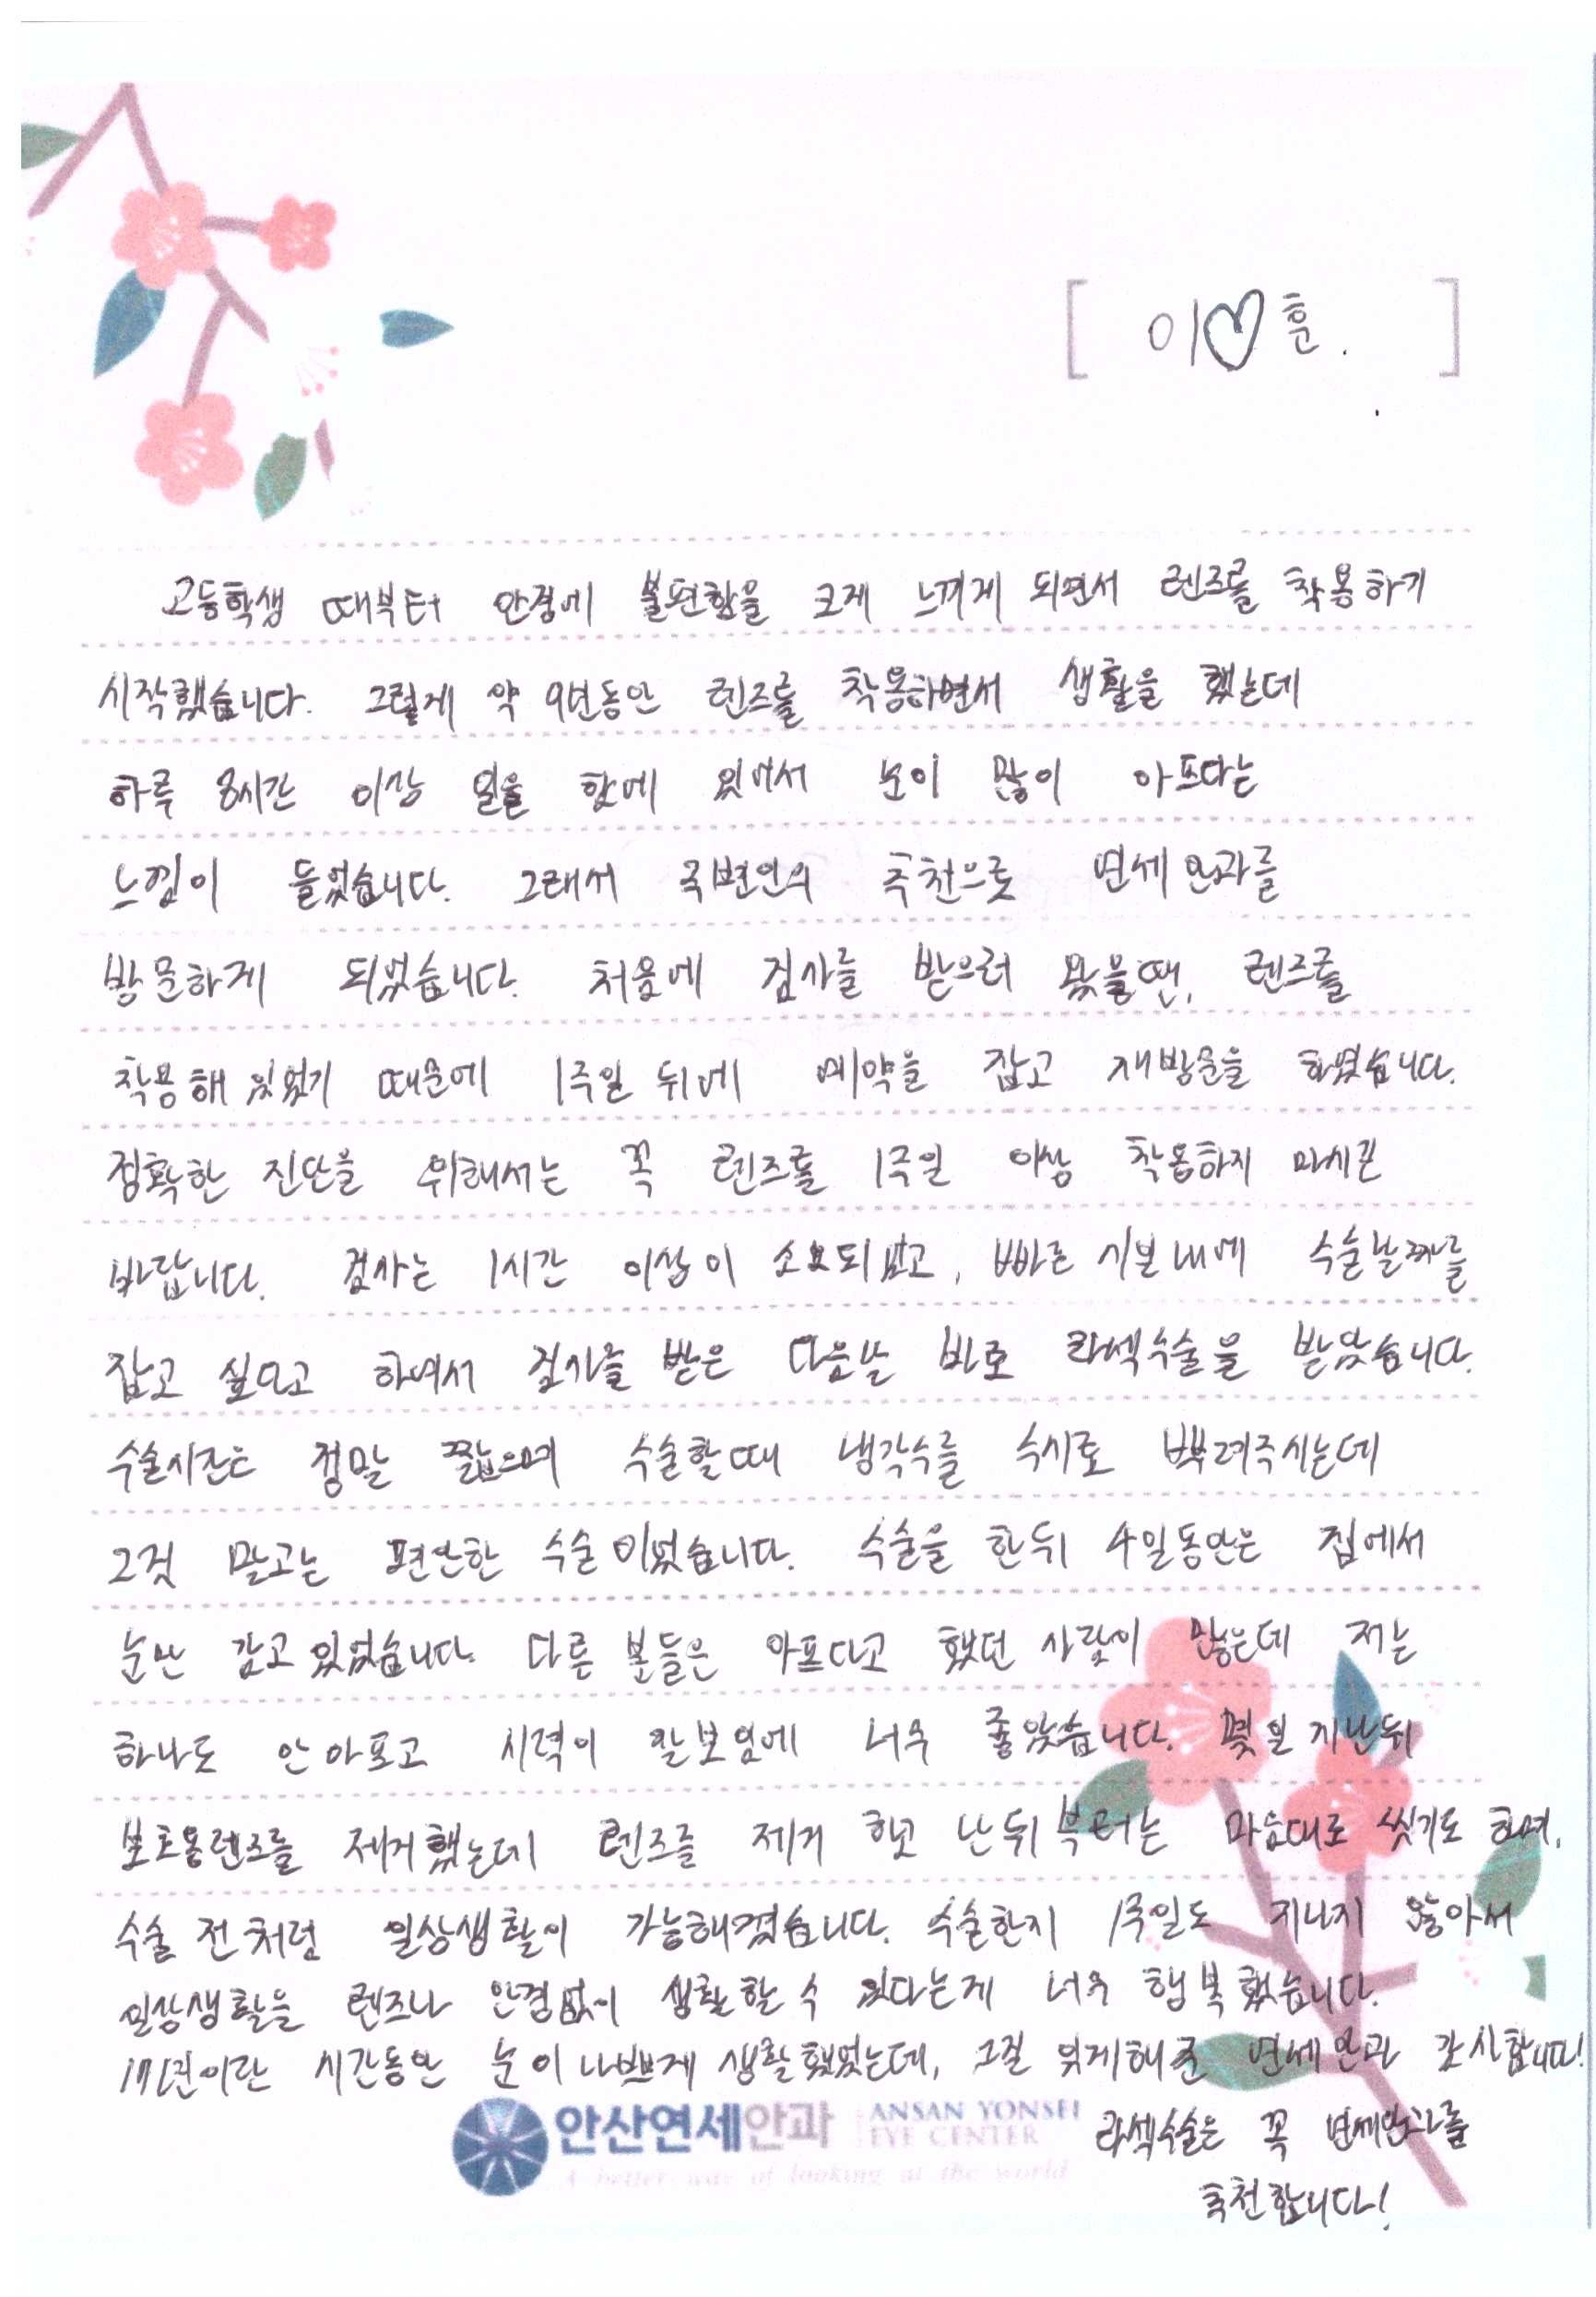 [ 이♡훈. ]
고등학생 때부터 안경에 불편함을 크게 느끼게 되면서 렌즈를 착용하기
시작했습니다. 그렇게 약 9년동안 렌즈를 착용하면서 생활을 했는데
하루 8시간 이상 일을 함에 있어서 눈이 많이 아프다는
느낌이 들었습니다. 그래서 주변인의 추천으로 연세안과를
방문하게 되었습니다. 처음에 검사를 받으러 왔을땐, 렌즈를
착용해있었기 때문에 1주일 뒤에 예약을 잡고 재방문을 하였습니다.
정확한 진단을 위해서는 꼭 렌즈를 1주일 이상 착용하지 마시곤
바랍니다. 검사는 1시간 이상이 소요되었고, 빠른 시일내에 수술날짜를
잡고 싶으고 하여서 검사를 받은 다음날 바로 라섹수술을 받았습니다.
수술시간는 정말 짧으며 수술할때 냉각수를 수시로 뿌려주시는데
그것 말고는 편안한 수술이었습니다. 수술을 한뒤 4일동안은 집에서
눈만 감고있었습니다. 다른 분들은 아프다고 했던 사람이 많은데 저는
하나도 안아프고 시력이 잘보임에 너무 좋았습니다. 몇일지난뒤
보호용렌즈를 제거했는데 렌즈를 제거 하고 난뒤부터는 마음대로 씻기도 하며,
수술 전처럼 일상생활이 가능해졌습니다. 수술한지 1주일도 지나지 않아서
일상생활을 렌즈나 안경없이 생활할 수 있다는게 너무 행복했습니다.
17년이란 시간동안 눈이 나쁘게 생활했었는데, 그걸 잊게해준 연세안과 감사합니다!
라섹수술은 꼭 연세안과를
추천합니다!
안산연세안과 ANSAN YONSEI
EYE CENTER
A better way of looking at the world